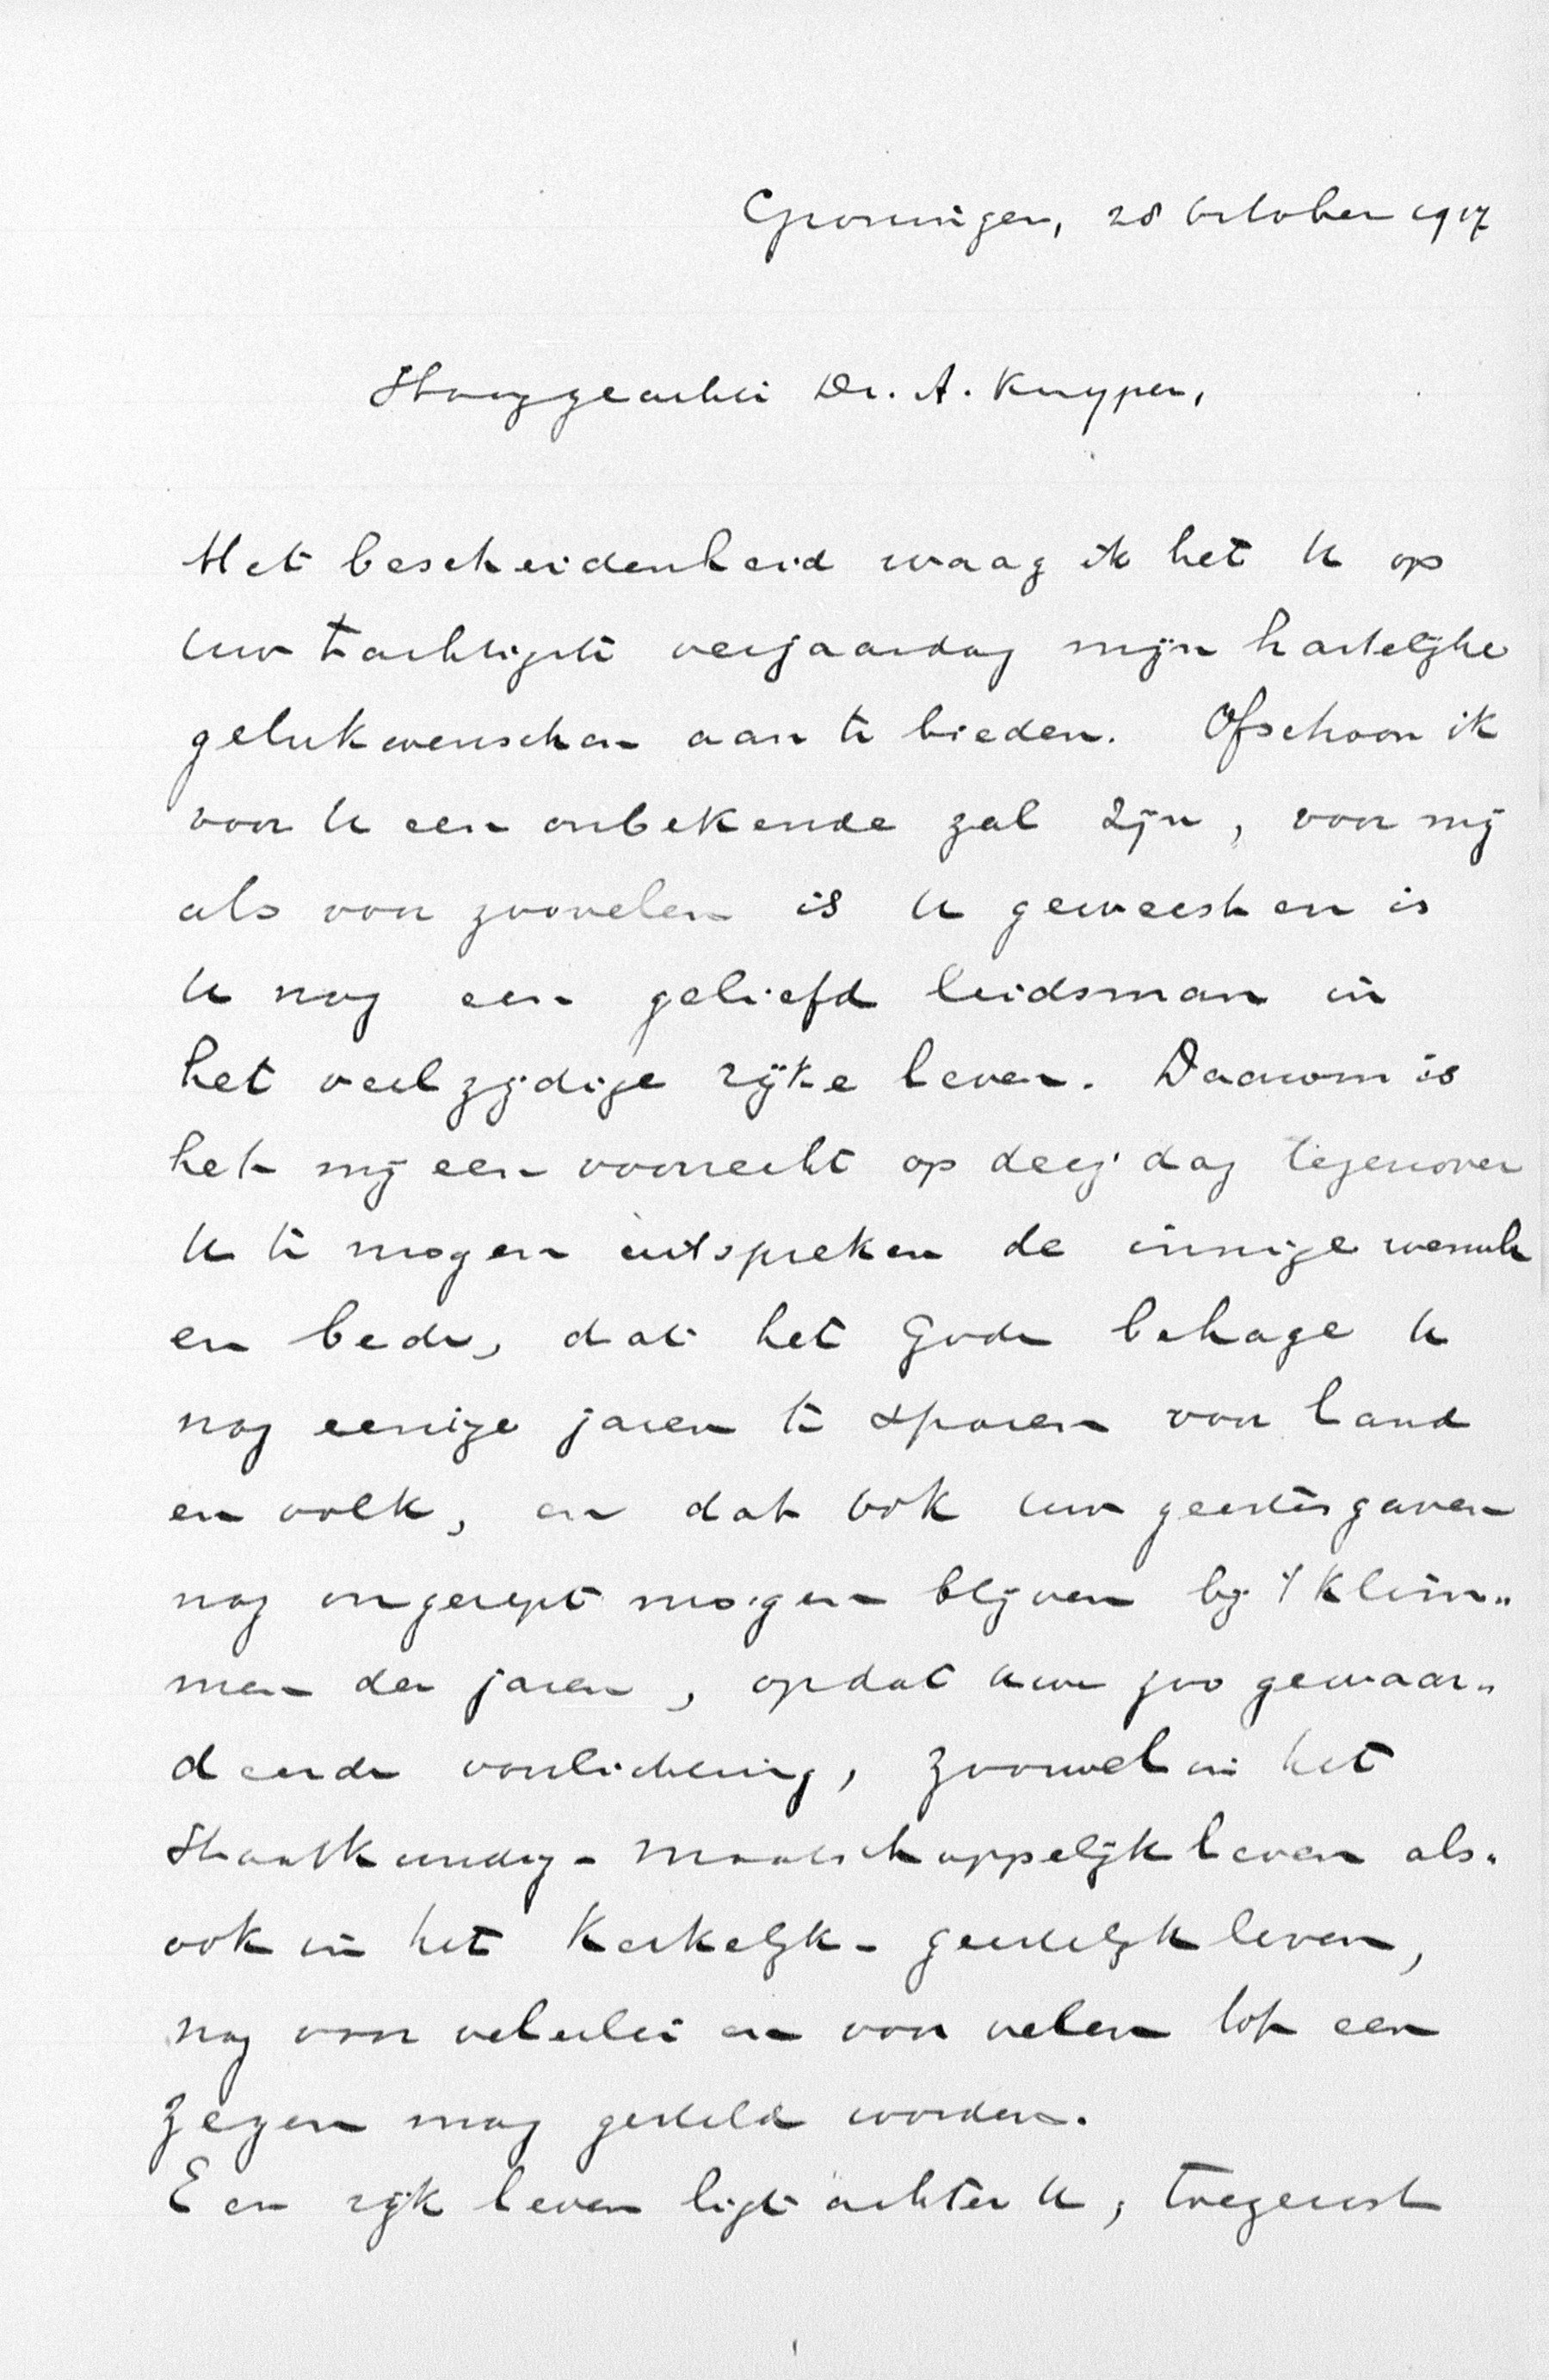 Groningen, 28 October 1917
Hooggeachte Dr. A. Kuyper,
Met bescheidenheid waag ik het U op
Uw tachtigste verjaardag mijn hartelijke
gelukwenschen aan te bieden. Ofschoon ik
voor U een onbekende zal zijn, voor mij
als voor zoovelen is U geweest en is
U nog een geliefd leidsman in
het veelzijdige rijke leven. Daarom is
het mij een voorrecht op deez' dag tegenover
U te mogen uitspreken de innige wensch
en bede, dat het Gode behage U
nog eenige jaren te sparen voor land
en volk, en dat ook Uw geestesgaven
nog ongerept mogen blijven bij 't klim„
men der jaren, opdat Uw zoo gewaar„
deerde voorlichting, zoowel in het
Staatkundig-maatschappelijk leven als„
ook in het Kerkelijk-geestelijk leven,
nog voor velerlei en voor velen tot een
zegen mag gesteld worden.
Een rijk leven ligt achter U, toegerust